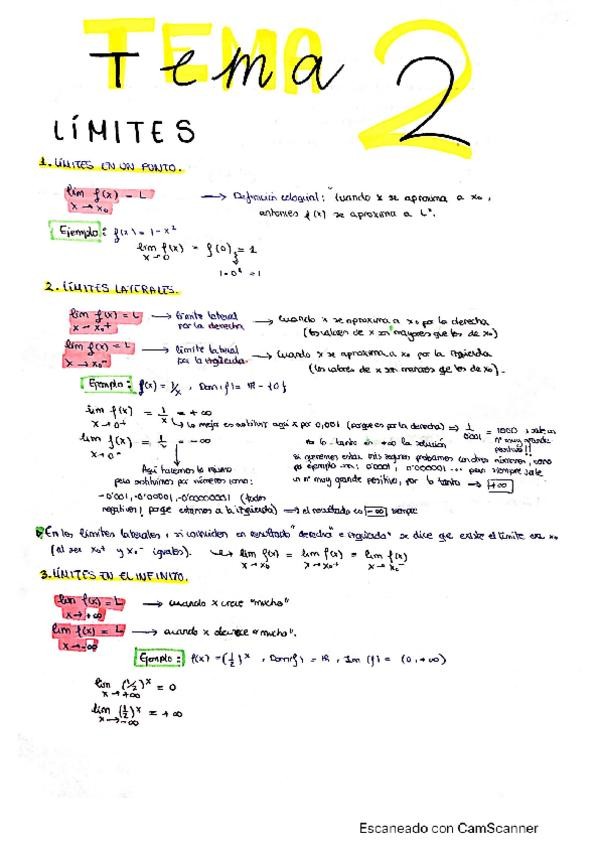 Tema 2
LÍMITES
1. LÍMITES EN UN PUNTO.
lim f(x) = L → Definición coloquial: "Cuando x se aproxima a x₀,
x→x₀ entonces f(x) se aproxima a L".
Ejemplo: f(x) = 1-x²
lim f(x) = f(0) = 1
x→0
1-0² = 1
2. LÍMITES LATERALES.
lim f(x) = L → límite lateral por la derecha → Cuando x se aproxima a x₀ por la derecha
x→x₀⁺ (los valores de x son mayores que los de x₀)
lim f(x) = L → límite lateral por la izquierda → Cuando x se aproxima a x₀ por la izquierda
x→x₀⁻ (los valores de x son menores que los de x₀).
Ejemplo: f(x) = 1/x, Dom f = ℝ - {0}
lim f(x) = 1/x = +∞
x→0⁺
Lo mejor es sustituir aquí x por 0,001 (porque es por la derecha) ⇒ 1/0'001 = 1000 ¡sale un nº muy grande positivo!!
Por lo tanto en +∞ la solución
si queremos estar más seguros probamos con otros números, como
por ejemplo con: 0'0001, 0'000001 ... pero siempre sale
un nº muy grande positivo, por lo tanto → +∞
lim f(x) = 1/x = -∞
x→0⁻
Aquí hacemos lo mismo
pero sustituimos por números como:
-0'001, -0'00001, -0'00000001 (todos
negativos, porque estamos a la izquierda) ⟹ el resultado es -∞ siempre
En los límites laterales, si coinciden en resultado "derecha" e "izquierda" se dice que existe el límite en x₀
(al ser x₀⁺ y x₀⁻ iguales). ↪ lim f(x) = lim f(x) = lim f(x)
x→x₀ x→x₀⁺ x→x₀⁻
3. LÍMITES EN EL INFINITO.
lim f(x) = L → cuando x crece "mucho"
x→+∞
lim f(x) = L → cuando x decrece "mucho".
x→-∞
Ejemplo: f(x) = (1/2)ˣ, Dom(f) = ℝ, Im (f) = (0,+∞)
lim (1/2)ˣ = 0
x→+∞
lim (1/2)ˣ = +∞
x→-∞
Escaneado con CamScanner